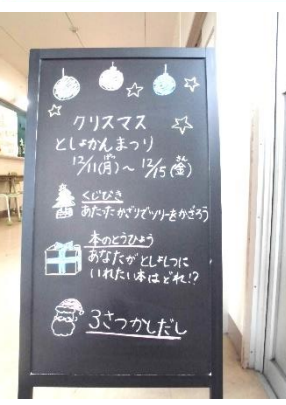 クリスマス
としょかんまつり
12/11(月)～12/15(金)
くじびき
あたったかざりでツリーをかざろう
本のとうひょう
あなたがとしょしつに
いれたい本はどれ!?
3さつかしだし